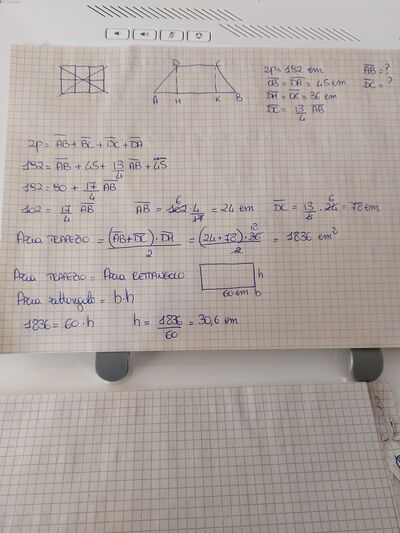 D C
A H K B
2p = 192 cm
C̅B̅ = D̅A̅ = 45 cm
D̅H̅ = C̅K̅ = 36 cm
D̅C̅ = 13/4 A̅B̅
A̅B̅ = ?
D̅C̅ = ?
2p = A̅B̅ + B̅C̅ + D̅C̅ + D̅A̅
192 = A̅B̅ + 45 + 13/4 A̅B̅ + 45
192 = 90 + 17/4 A̅B̅
102 = 17/4 A̅B̅ A̅B̅ = 102 · 4/17 = 24 cm D̅C̅ = 13/4 · 24 = 78 cm
6 6
Area TRAPEZIO = (A̅B̅ + D̅C̅) · D̅H̅/2 = (24 + 78) · 36/2 = 1836 cm²
18
Area TRAPEZIO = Area RETTANGOLO
h
60 cm b
Area rettangolo = b · h
1836 = 60 · h h = 1836/60 = 30,6 cm